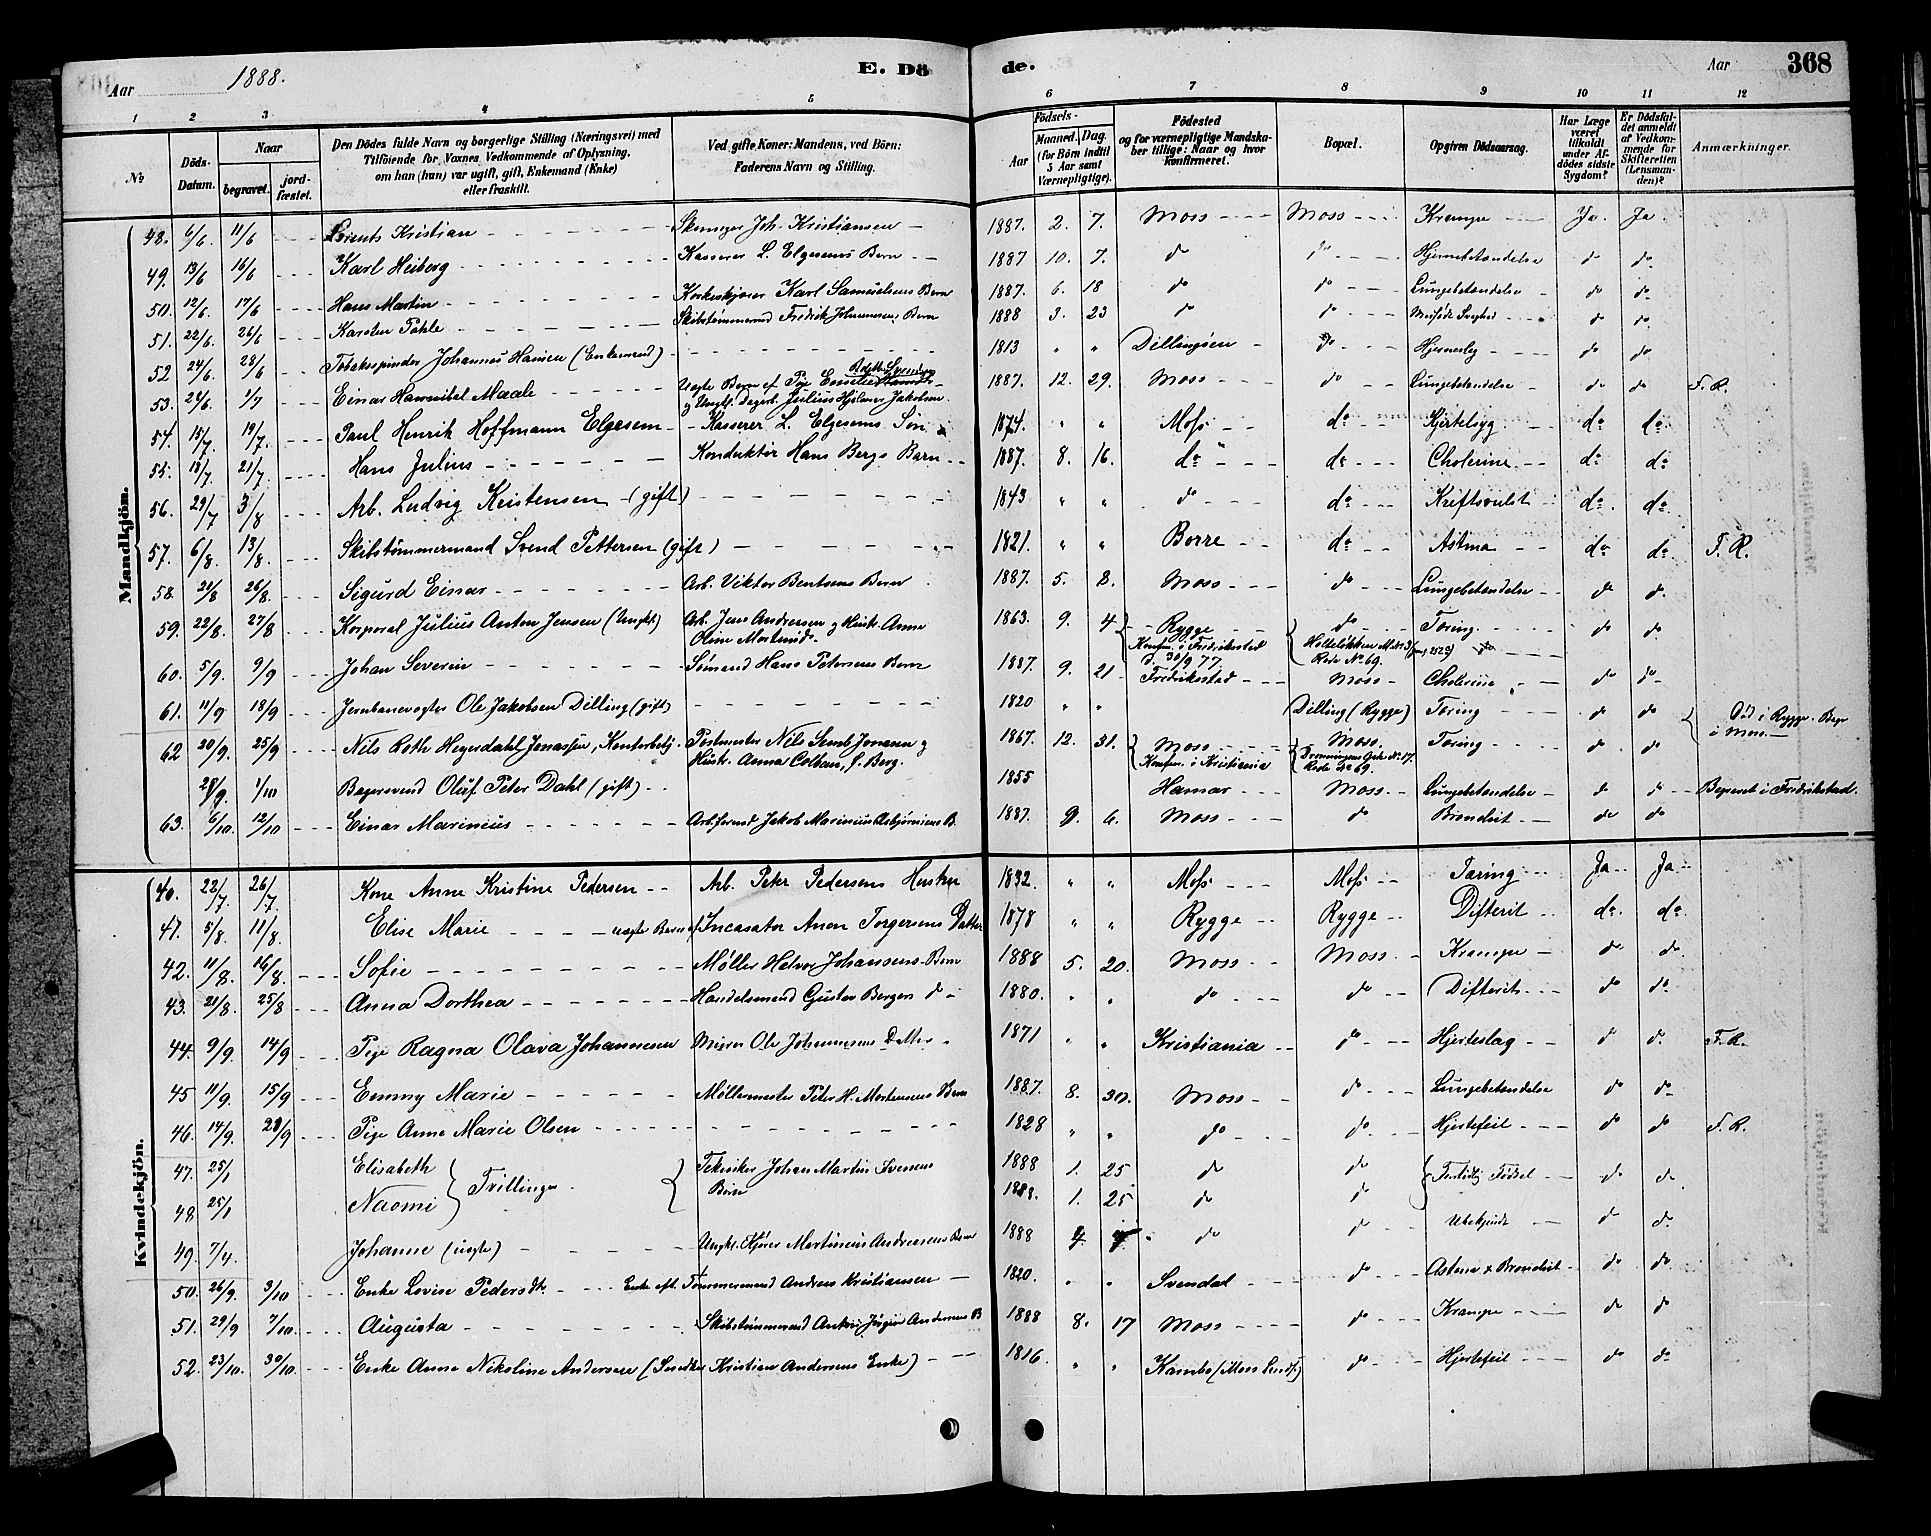 Aar 1888. E. Dö de. Aar 368
1 2 3 4 5 6 7 8 9 10 11 12
No Döds-Datum. Naar begravet. jord-fæstet. Den Dödes fulde Navn og borgerlige Stilling (Næringsvei) med Tilföiende for Voxnes Vedkommende af Oplysning, om han (hun) var ugift, gift, Enkemand (Enke) eller fraskilt. Ved gifte Koner: Mandens, ved Börn: Faderens Navn og Stilling. Födsels- Aar Maaned. Dag. (for Börn indtil 5 Aar samt Værnepligtige). Födested og for værnepligtige Mandska-ber tillige: Naar og hvor konfirmeret. Bopæl. Opgiven Dödsaarsag. Har Læge været tilkaldt under Af-dödes sidste Sygdom? Er Dödsfal-det anmeldt af Vedkom-mende for Skifteretten (Lensman-den)? Anmærkninger.
Mandkjön.
48. 6/6 11/6 Lorents Kristian Skomager Joh. Kristiansen 1887. 2. 7. Moss Moss Krampe Ja. Ja
49. 13/6 16/6 Karl Heiberg Kasserer L. Elgesens Barn 1887 10. 7. do do Hjernebetændelse do do
50. 12/6 17/6 Hans Martin Karl Samuelsens Barn 1887. 6. 18 do do Lungebetændelse do do
51. 22/6. 26/6 Karsten Pahle Skibstømmermd Fredrik Johannesens Barn 1888 3. 23 do do Medfødt Svaghed do do
52 24/6. 28/6 Tobaksspinder Johannes Hansen (Enkemand) 1813 " " Dillingöen do Hjerneslag do do
53. 24/6. 1/7 Einar Hannibal Maale Uægte Barn af Pige Emilie
og Ungk. Dagarb. Julius Hjalmar Jakobsen 1887. 12. 29. Moss do Lungebetændelse do do F. R.
54. 15/7 19/7. Paul Henrik Hoffmann Elgesem Kasserer L. Elgesems Søn 1874. " " Moss do Hjertesyg do do
55. 18/7. 21/7. Hans Julius Konduktør Hans Bergs Barn 1887. 8. 16. do do Cholerine do do
56. 29/7 3/8 Arb. Ludvig Kristensen (gift) 1843 " " do do Kræftsvulst do do
57. 6/8 13/8. Skibstømmermand Svend Pettersen (gift) 1821. " " Borre do Astma do do F. R.
58. 20/8 26/8. Sigurd Einar Arb. Viktor Bentsens Barn 1887. 5. 8. Moss do Lungebetændelse do do
59. 22/8. 27/8 Korporal Julius Anton Jensen (Ungkl) Arb. Jens Andreasen og Hustr. Anne
Oline Mortensd. 1863. 9. 4 Rygge
Konfm. i Fredrikstad
d. 30/9 77. do Tæring do do
60. 5/9. 9/9 Johan Severin Sømand Hans Petersens Barn 1887. 9. 21 Fredrikstad Moss Cholerine do do
61. 11/9 18/9 Jernbanevogter Ole Jakobsen Dilling (gift) 1820 " " Dilling (Rygge) Tæring do do Död i Rygge. Begr
i Moss.
62 20/9. 25/9 Nils Roth Heyerdahl Jonassen, Kontorbetj. Postmester Nils Semb Jonassen og
Hustr. Anna Colban, f. Berg. 1867. 12. 31. Moss
Konfm. i Kristiania Moss
Dronningens Gade No 17.
Rode No 69. Tæring do do
28/9. 1/10 Bagersvend Oluf Peter Dahl (gift) 1855 Hamar Moss Lungebetændelse do do Begravet i Fredrikstad.
63. 6/10 12/10 Einar Marinius Arb.formd Jakob Marinius Asbjørnsens B. 1887. 9. 6. Moss do Bronchit do do
Kvindekjön.
40. 22/7 26/7. Kone Anne Kristine Pedersen Arb. Peter Pedersens Hustru 1832. " " Moss Moss Tæring Ja Ja
41. 5/8. 11/8. Elise Marie uægte Barn af Incasator Anon Torgersens Datter 1878 " " Rygge Rygge Difterit do. do.
42. 11/8. 16/8. Sofie Møller Halvor Johansens Barn 1888 5. 20. Moss Moss Krampe do do
43. 21/8. 25/8 Anna Dorthea Handelsmand Gustav Bergers do 1880. " " do do Difterit do do
44. 9/9. 14/9 Pige Ragna Olava Johannesen Murer Ole Johannesens Datter 1871 " " Kristiania do Hjerteslag do do F. R.
45 11/9. 15/9 Emmy Marie Møllermester Peter H. Mortensens Barn 1887. 8. 30. Moss do Lungebetændelse do do
46. 14/9. 20/9 Pige Anne Marie Olsen 1828 " " do do Hjertefeil do do F. R.
47. 25/1 Elisabeth Tvillinger Tekniker Johan Martin Svensens
Børn 1888 1. 25 do do Fortidlig Födsel do do
48 25/1 Naomi 1888. 1. 25 do do do do
49. 7/4. Johanne (uægte) Ungk. Kjører Martinius Andreasens Barn 1888 4. 7. do do Ubekjendt do do
50. 26/9. 3/10 Enke Lovise Pedersdtr. Enke eft. Tømmermand Andreas Kristiansen 1820. " " Svendal do Astma & Bronchit do do
51. 29/9 7/10. Augusta Skibstømmermd Anton Jørgen Andersens B 1888 8. 17 Moss do Krampe do do
52. 23/10. 30/10. Enke Anne Nikoline Andersen (Snedker Kristian Andersens Enke) 1816. " " Kambo (Moss Lands.) do Hjertefeil do do